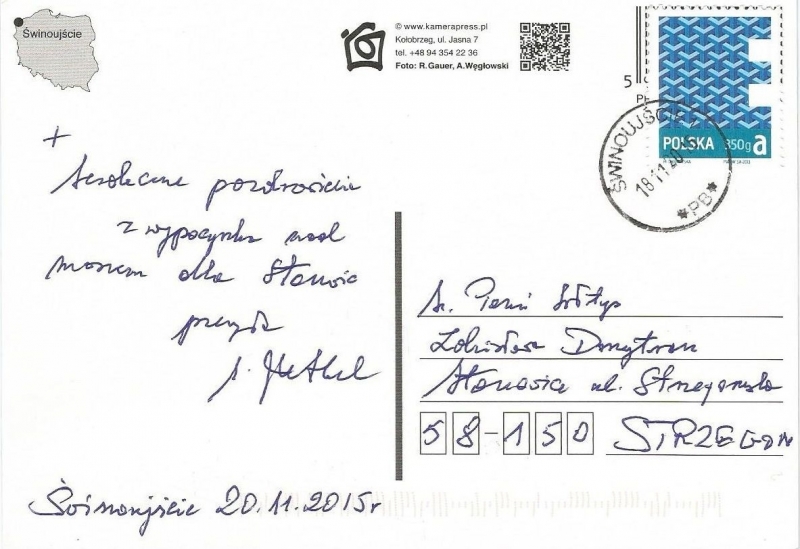 Świnoujście
© www.kamerapress.pl
Kołobrzeg, ul. Jasna 7
tel. +48 94 354 22 36
Foto: R.Gauer, A.Węgłowski
5
POLSKA 350g a
ŚWINOUJŚCIE
18.11
*PB*
+
Serdeczne pozdrowienia
z wypoczynku nad
morzem dla Stanowic
przesyła
Pani Sołtys
Stanowice ul. Strzegomska
58-150 STRZEGOM
Świnoujście 20.11.2015r